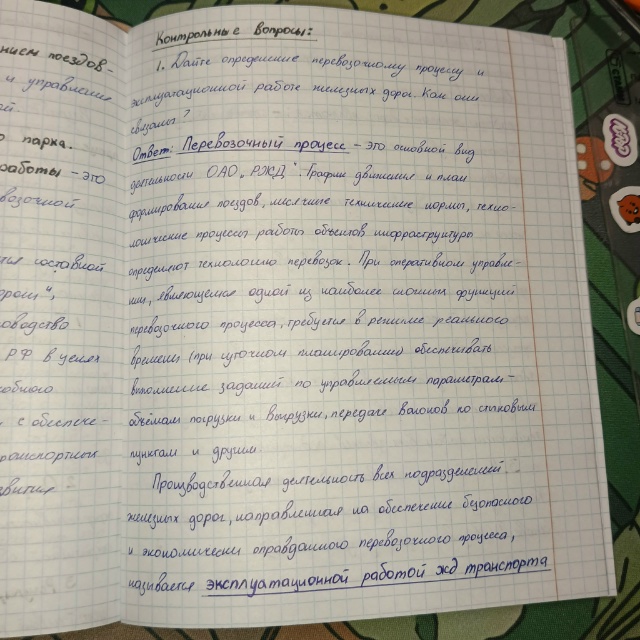 нием поездов-
и управление
ой.
о парка.
работы - это
возочной
тся составной
ководство
РФ в целях
с обеспече-
ранспортным
звития
Контрольные вопросы:
1. Дайте определение перевозочному процессу и
эксплуатационной работе железных дорог. Как они
связаны?
Ответ: Перевозочный процесс - это основной вид
деятельности ОАО „РЖД“. График движения и план
формирования поездов, месячные технические нормы, техно-
логические процессы работы объектов инфраструктуры
определяют технологию перевозок. При оперативном управле-
нии, являющемся одной из наиболее сложных функций
перевозочного процесса, требуется в режиме реального
времени (при суточном планировании) обеспечивать
выполнение заданий по управляемым параметрам-
объёмам погрузки и выгрузки, передаче вагонов по стыковым
пунктам и другим
Производственная деятельность всех подразделений
железных дорог, направленная на обеспечение безопасного
и экономически оправданного перевозочного процесса,
называется эксплуатационной работой жд транспорта